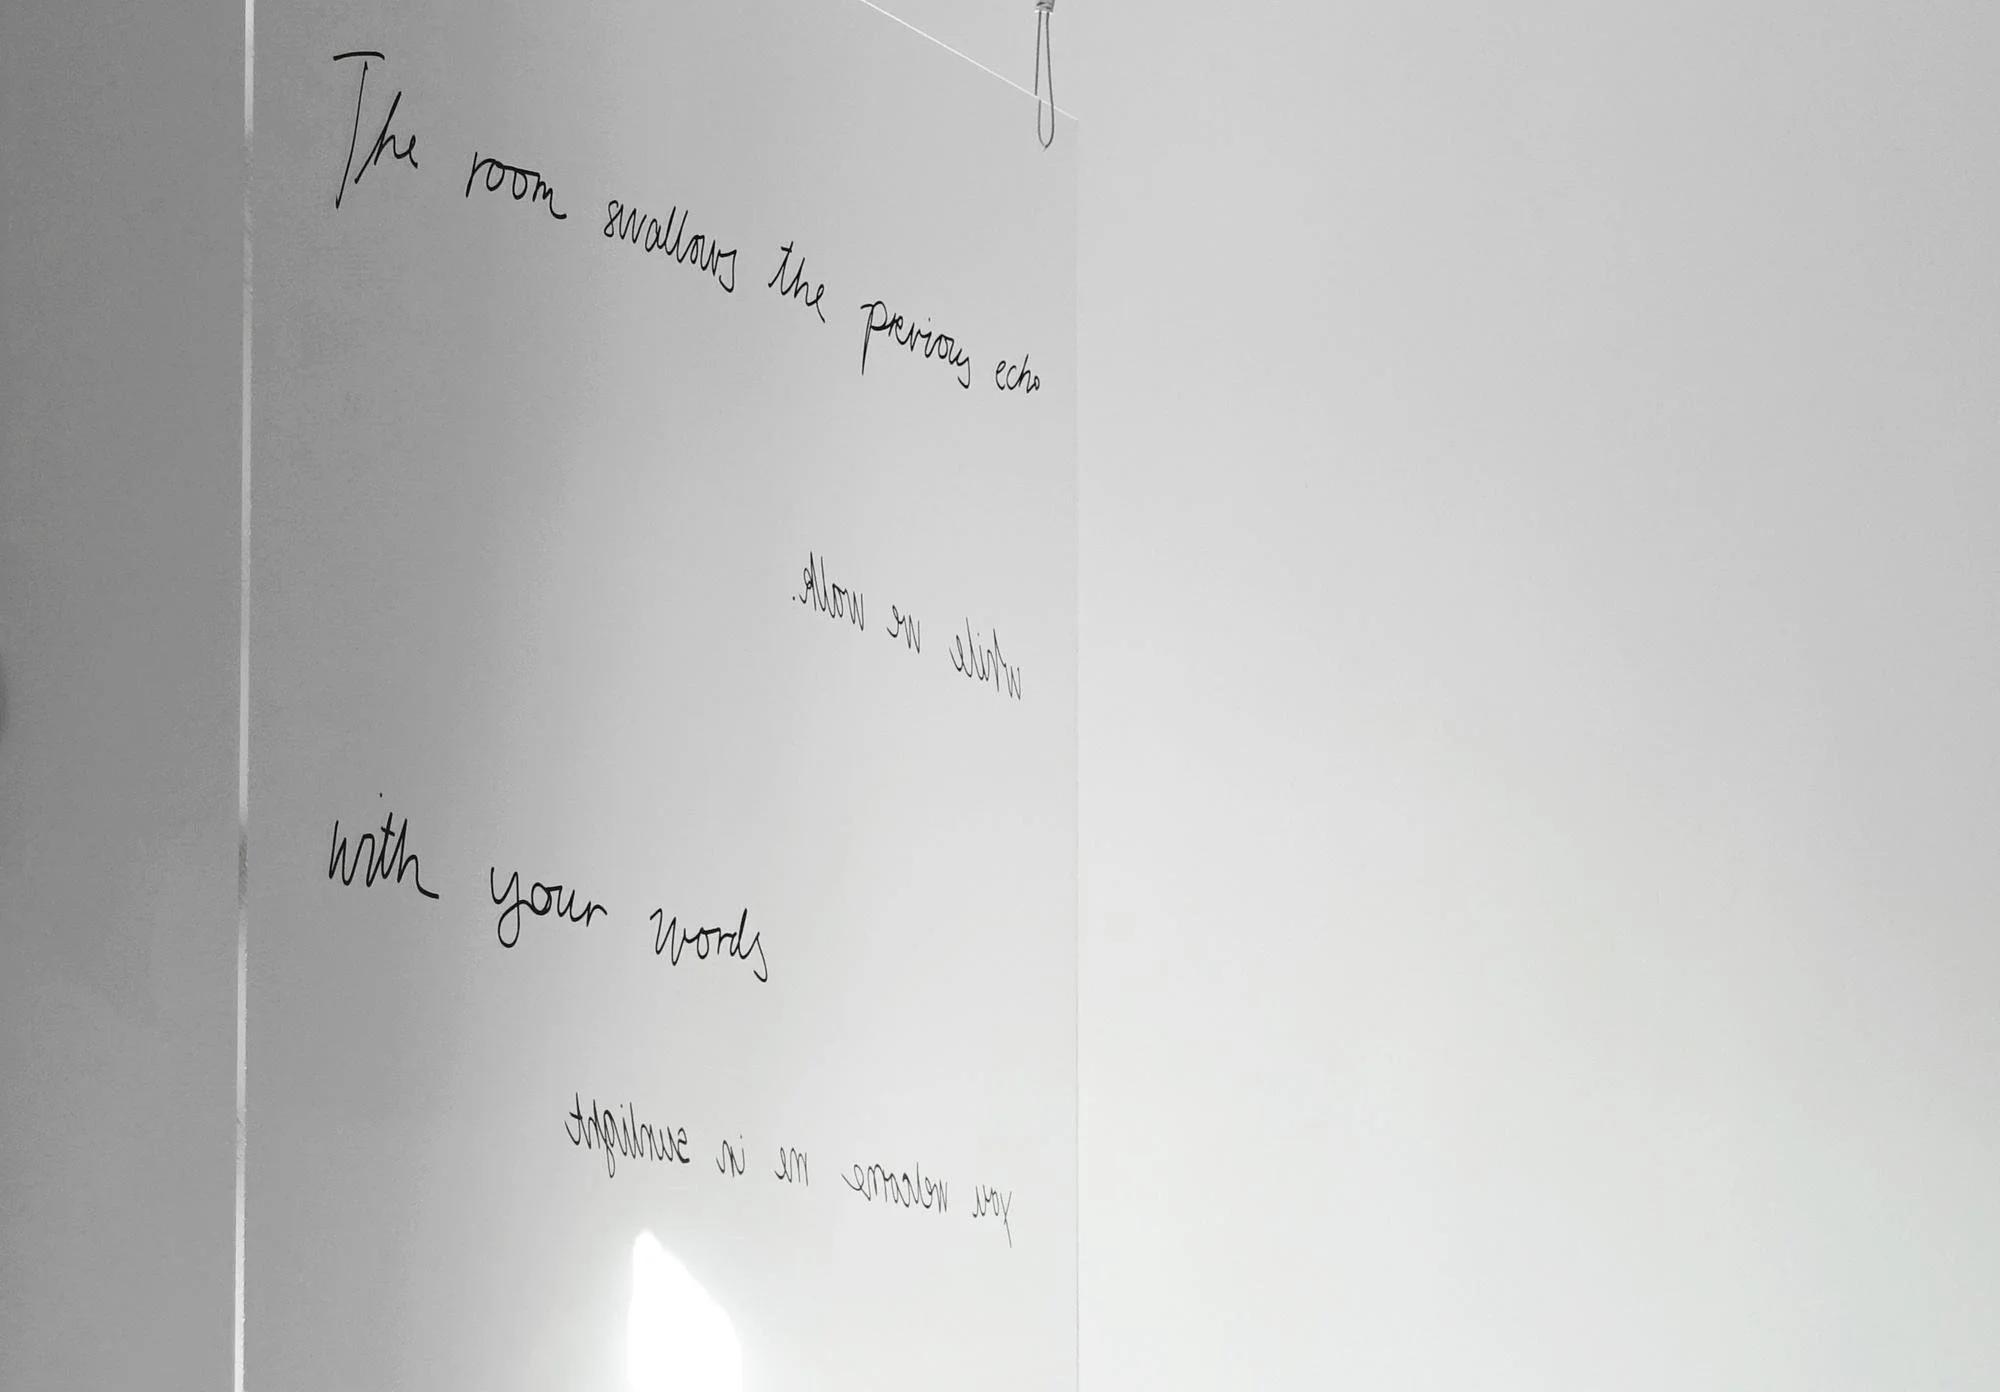 The room swallows the previous echo
while we walk.
with your words
you welcome me in sunlight